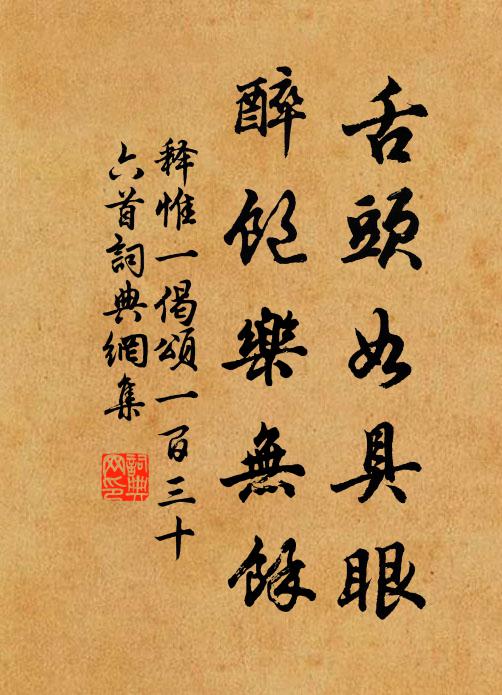 舌頭如具眼
醉飽樂無餘
释惟一偈頌一百三十
六首詞典網集
詞典
网印